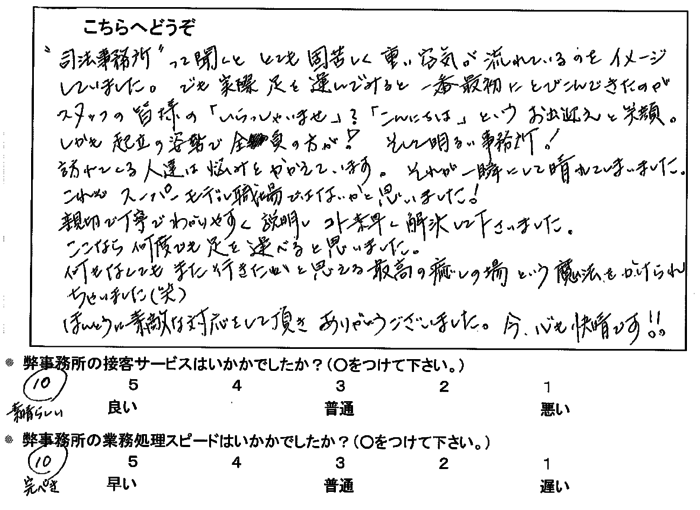 こちらへどうぞ
"司法事務所"って聞くと とても固苦しく重い空気が流れているのをイメージ
していました。でも実際 足を運んでみると一番最初にとびこんできたのが
スタッフの皆様の「いらっしゃいませ」?「こんにちは」というお出迎えと笑顔。
しかも起立の姿勢で全員の方が! そして明るい事務所!
訪れてくる人達は悩みをかかえています。それが一瞬にして晴れてしまいました。
これぞ スーパーモデル職場ではないかと思いました!
親切で丁寧でわかりやすく説明し 素早く解決して下さいました。
ここなら何度でも足を運べると思いました。
何もなくても また行きたいと思える最高の癒しの場という魔法をかけられ
ちゃいました(笑)
ほんとうに素敵な対応をして頂き ありがとうございました。今、心も快晴です!!
● 弊事務所の接客サービスはいかがでしたか?(○をつけて下さい。)
10 5 4 3 2 1
素晴らしい 良い 普通 悪い
● 弊事務所の業務処理スピードはいかがでしたか?(○をつけて下さい。)
10 5 4 3 2 1
完ぺき 早い 普通 遅い